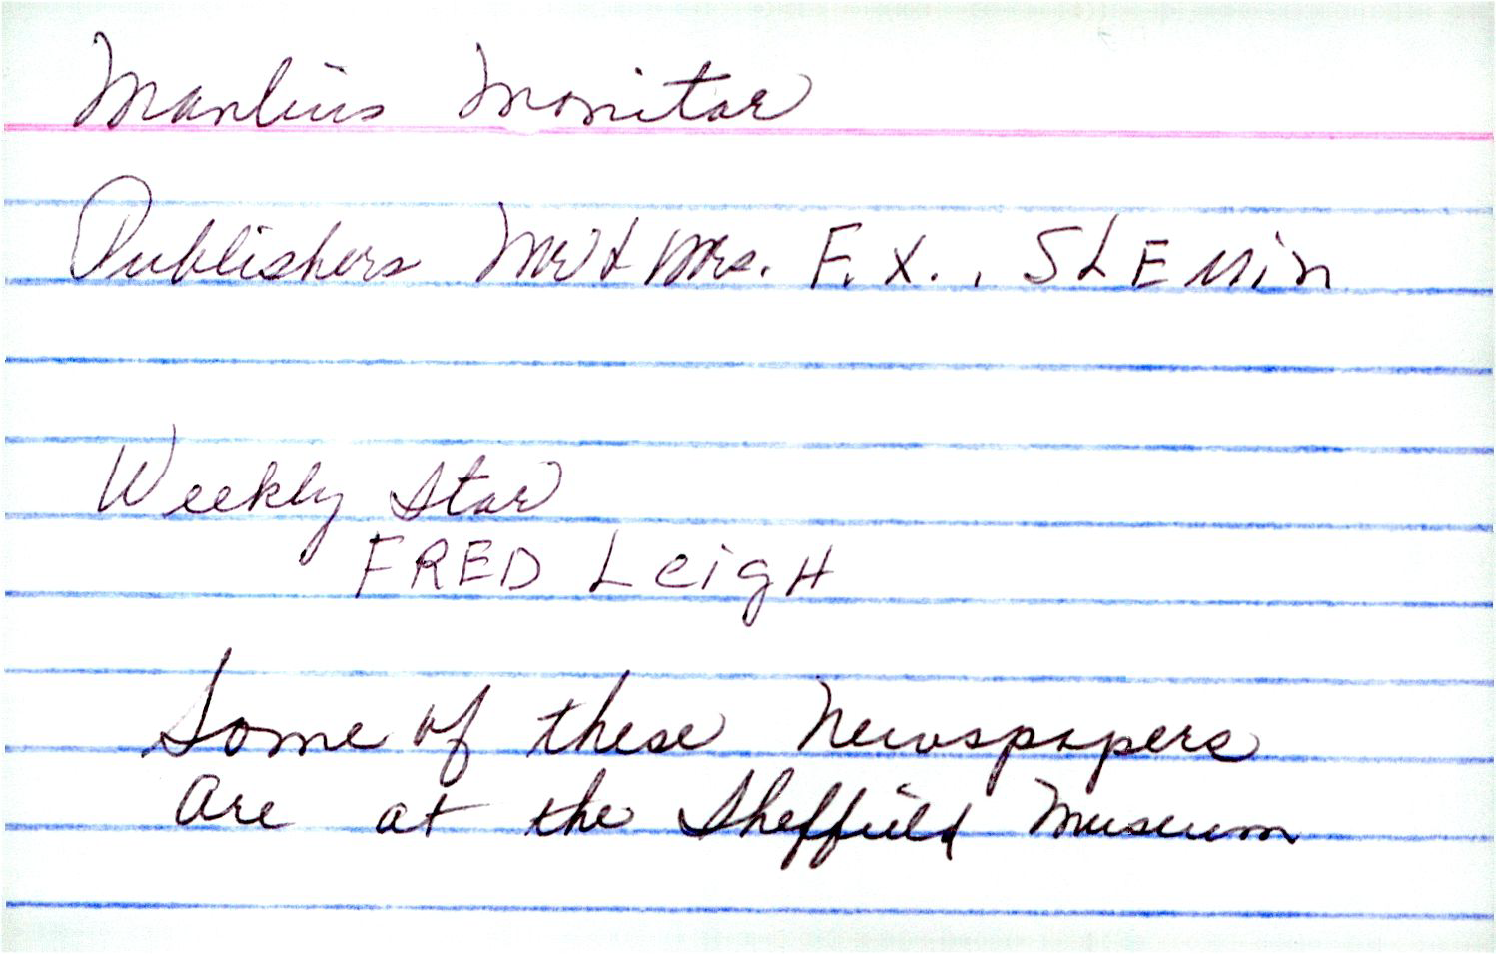 Manlius Monitor
Publishers Mr & Mrs. F. X.,
Weekly Star
FRED LeigH
Some of these Newspapers
are at the Sheffield Museum